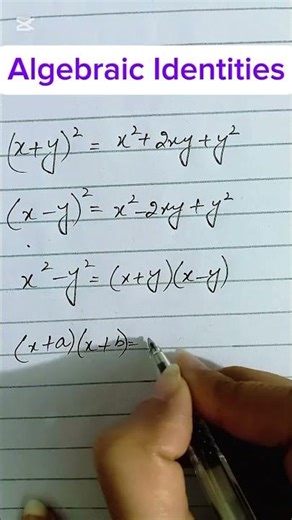 Algebraic Identities
(x+y)² = x²+2xy+y²
(x-y)² = x²-2xy+y²
x²-y² = (x+y)(x-y)
(x+a)(x+b)=